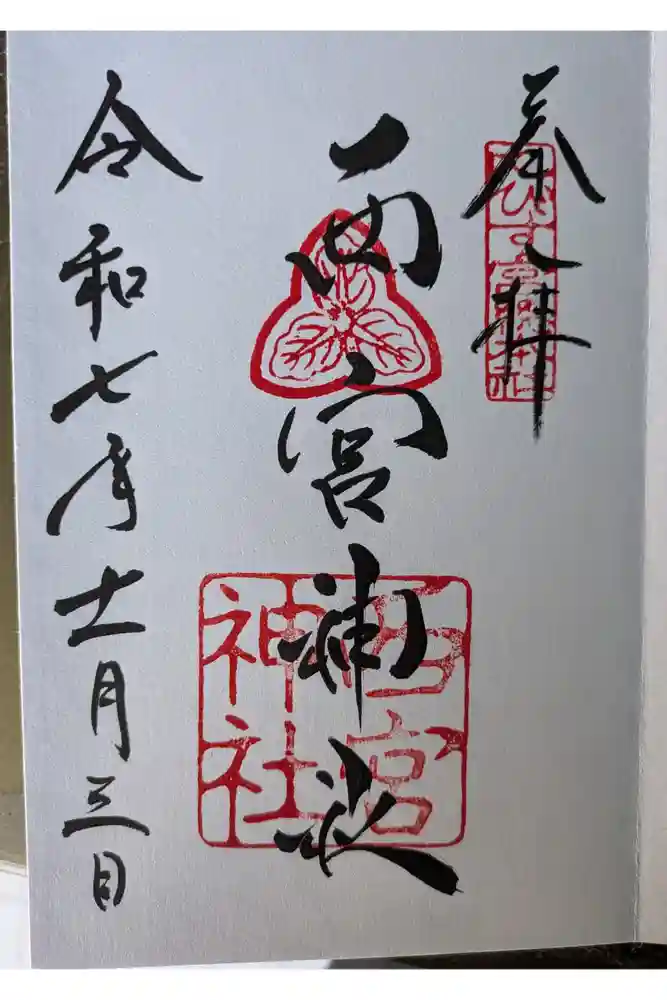 奉拝
えびす宮総本社
西宮神社
西宮
神社
令和七年十一月三日